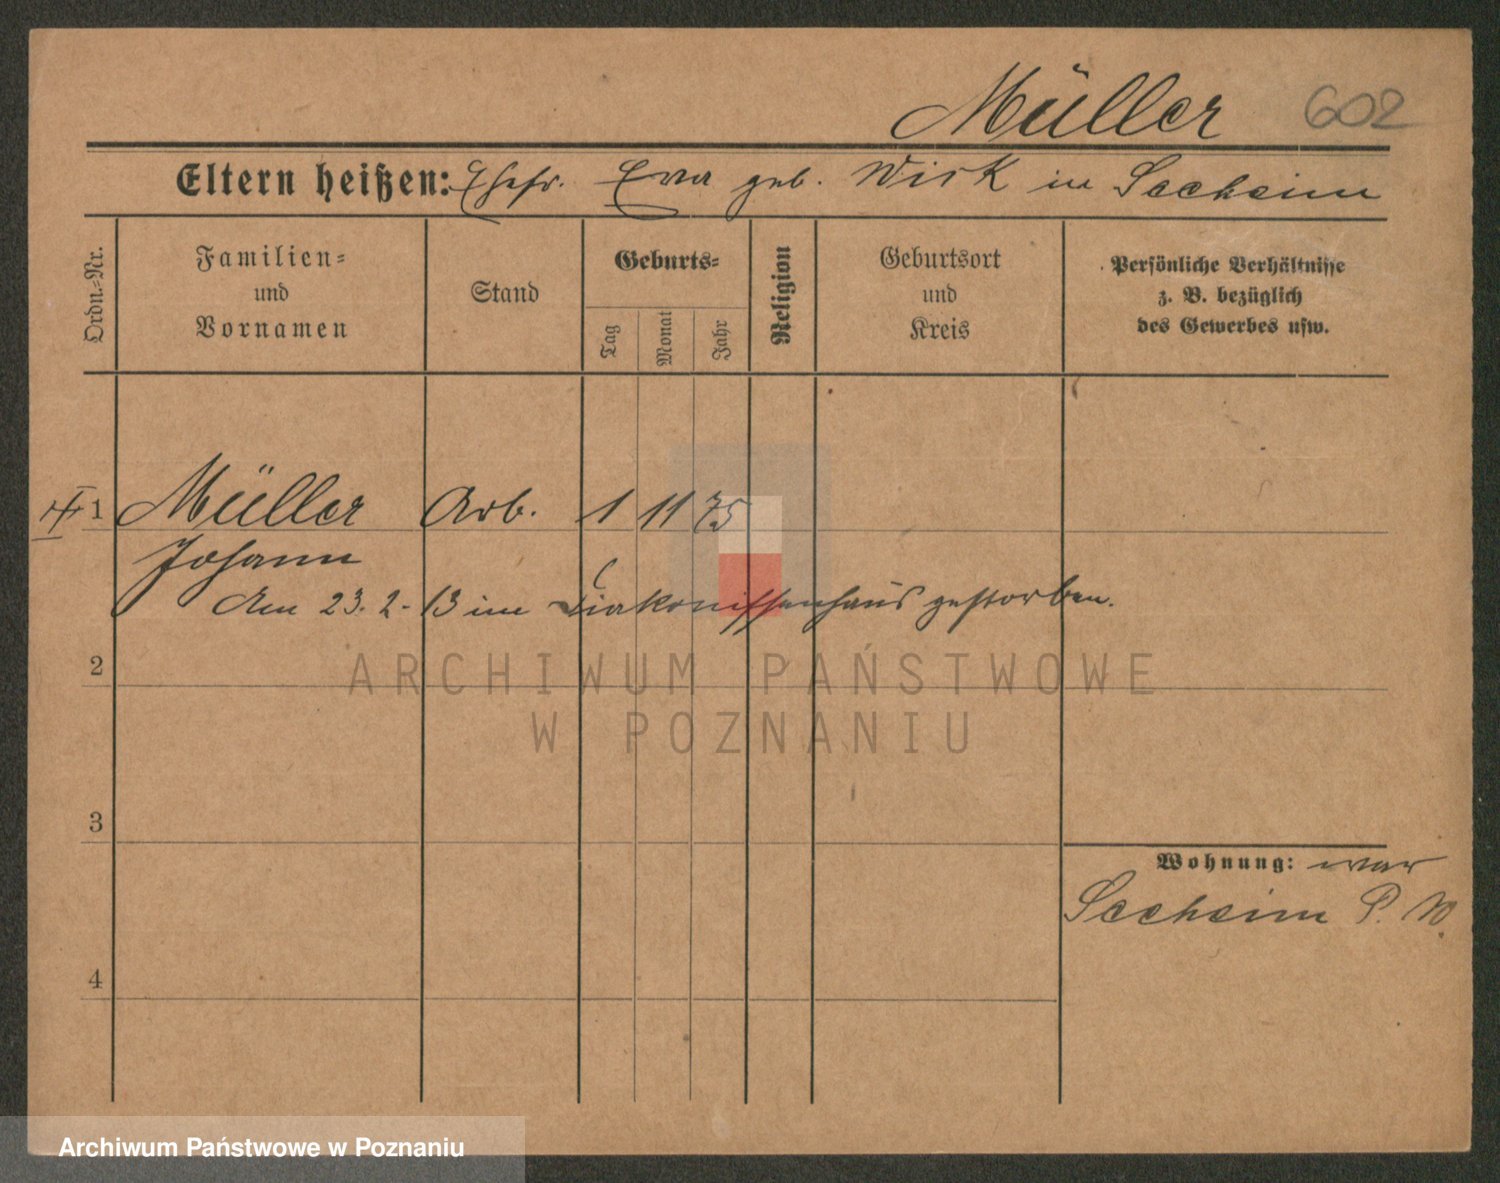 Müller 602
Eltern heißen: Ehefr. Eva geb. Wirk in Seeheim
Ordn.-Nr.
Familien-
und
Vornamen
Stand
Geburts-
Tag
Monat
Jahr
Religion
Geburtsort
und
Kreis
Persönliche Verhältnisse
z. B. bezüglich
des Gewerbes usw.
1 Müller Arb. 1 11 75
Johann
Am 23. 2. 13 im Diakonissenhaus gestorben.
ARCHIWUM PAŃSTWOWE
W POZNANIU
2
3
Wohnung: war
Seeheim P. W.
4
Archiwum Państwowe w Poznaniu